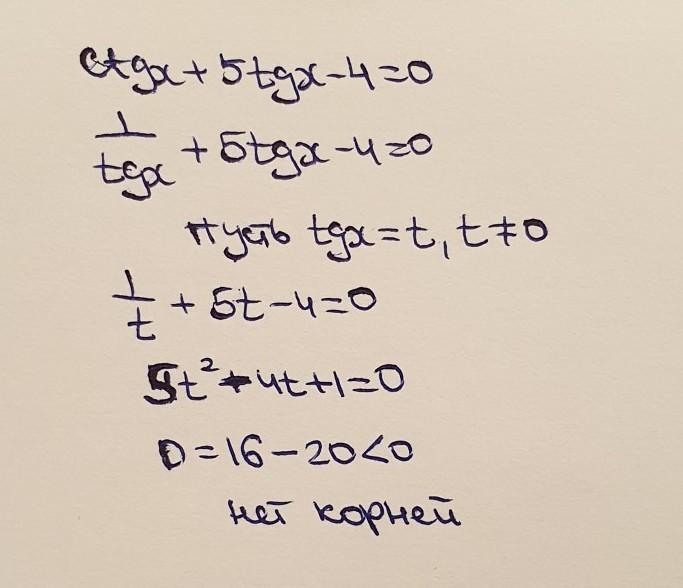 ctgx + 5tgx - 4 = 0
1/tgx + 5tgx - 4 = 0
Пусть tgx = t, t ≠ 0
1/t + 5t - 4 = 0
5t² - 4t + 1 = 0
D = 16 - 20 < 0
нет корней